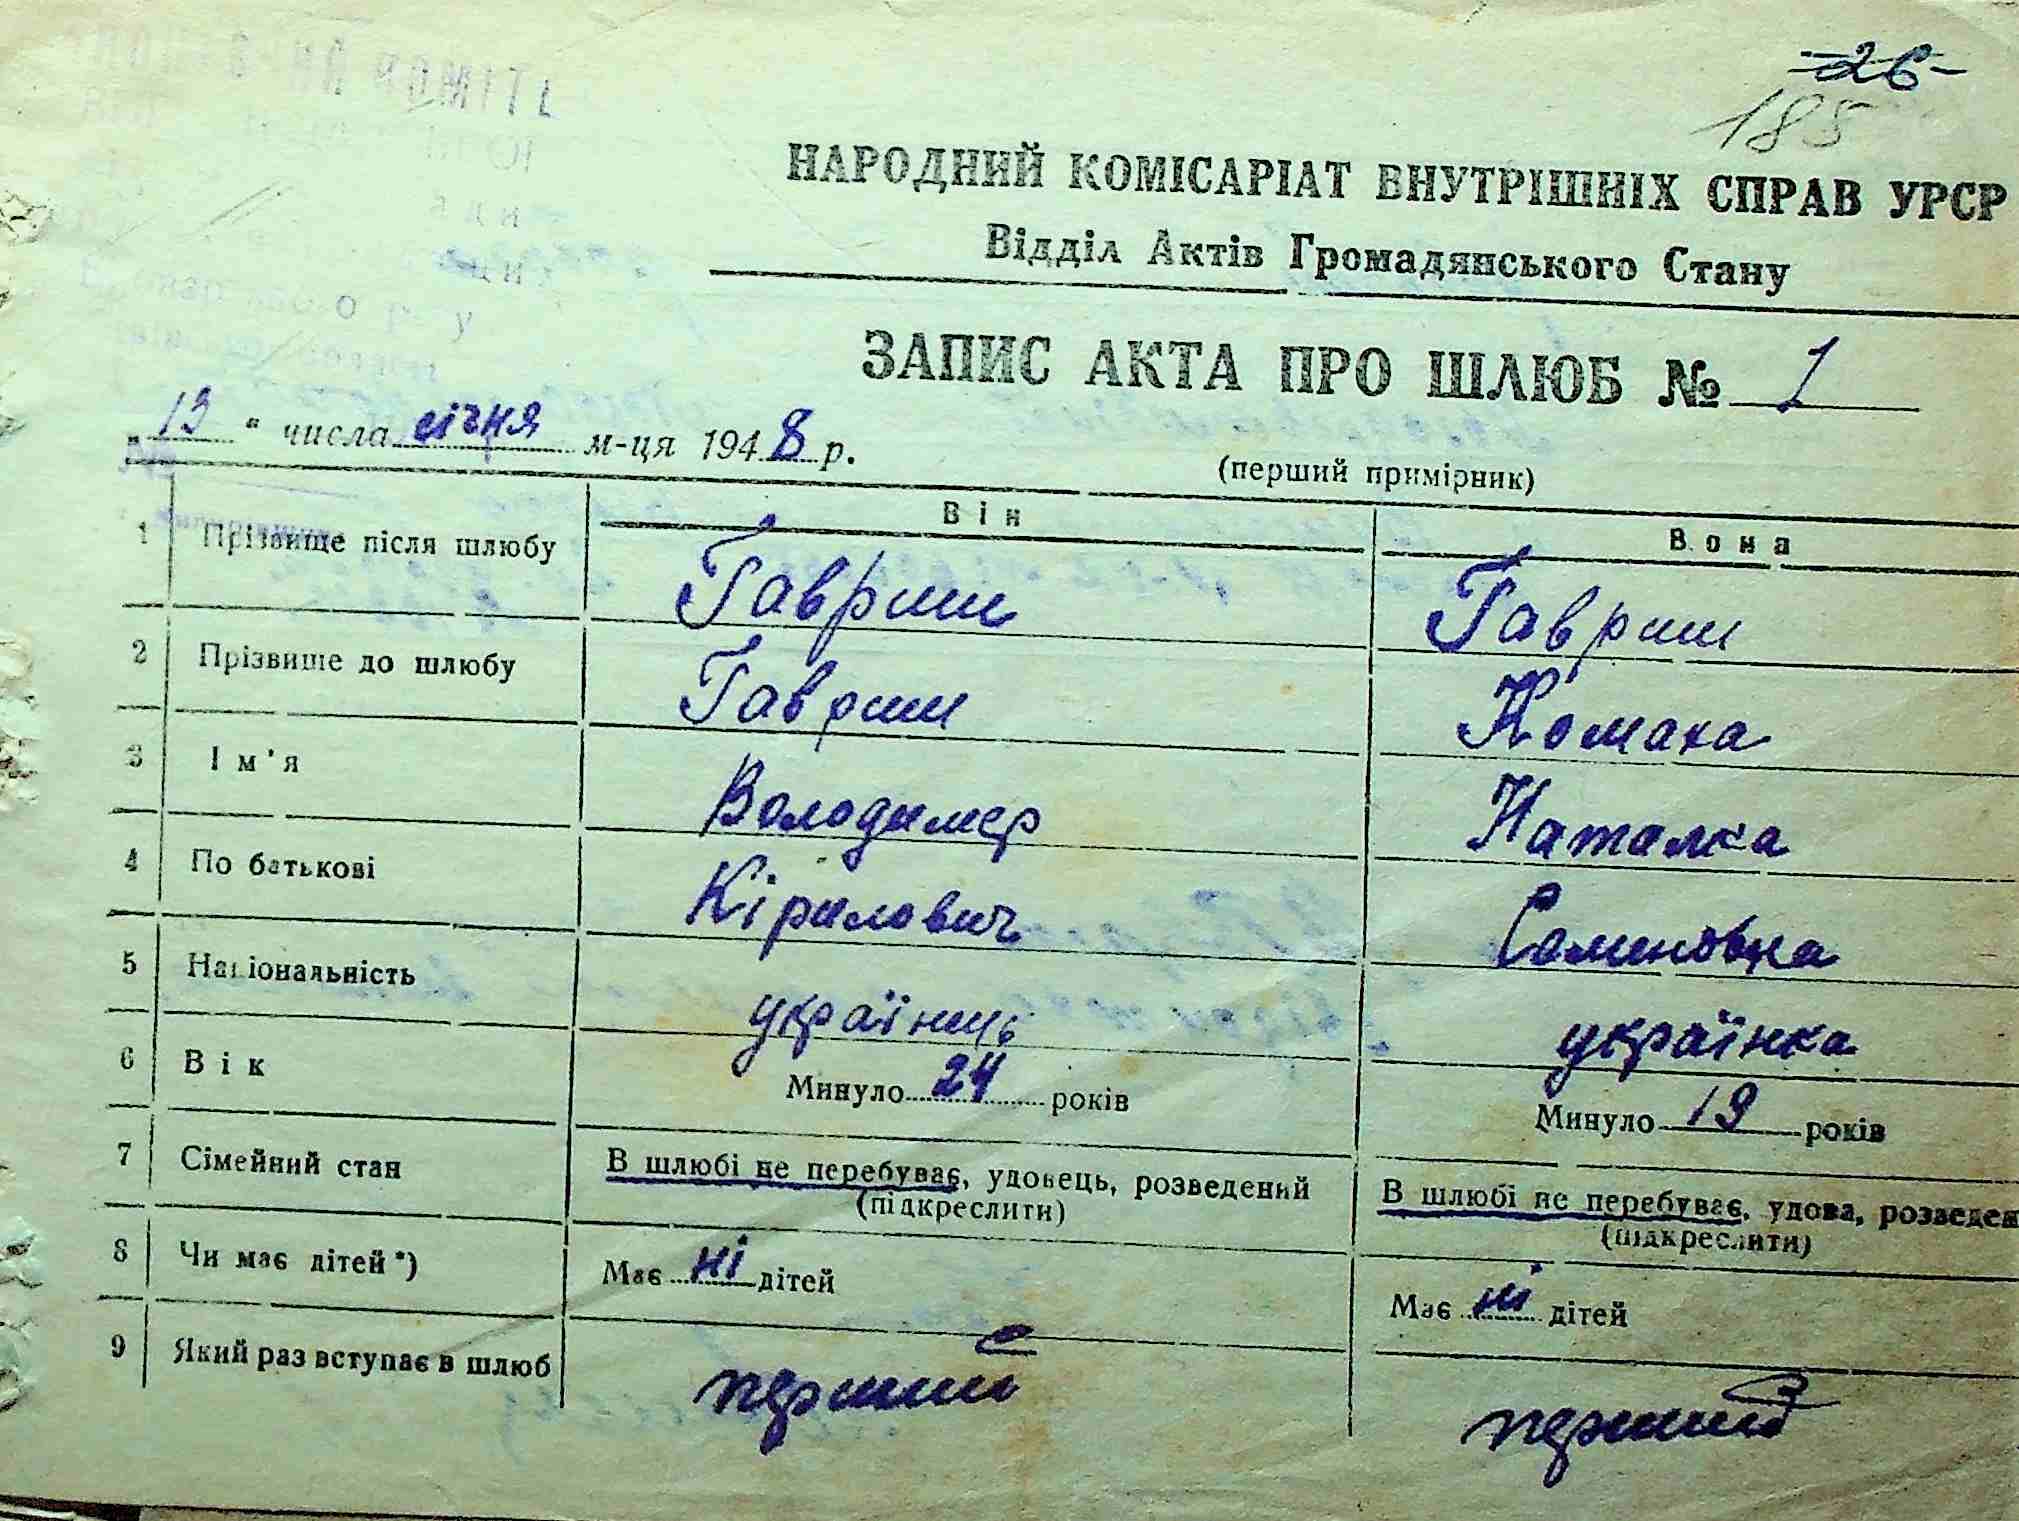 -26-
185
НАРОДНИЙ КОМІСАРІАТ ВНУТРІШНІХ СПРАВ УРСР
Відділ Актів Громадянського Стану
ЗАПИС АКТА ПРО ШЛЮБ № 1
„13“ числа січня м-ця 1948 р.
(перший примірник)
Він Вона
1 Прізвище після шлюбу Гавриш Гавриш
2 Прізвище до шлюбу Гавриш Комаха
3 Ім'я Володимер Наталка
4 По батькові Кірилович Семеновна
5 Національність українець українка
6 Вік Минуло 24 років Минуло 19 років
7 Сімейний стан В шлюбі не перебуває, удовець, розведений В шлюбі не перебуває, удова, розведен
(підкреслити) (підкреслити)
8 Чи має дітей *) Має ні дітей Має ні дітей
9 Який раз вступає в шлюб перший перший